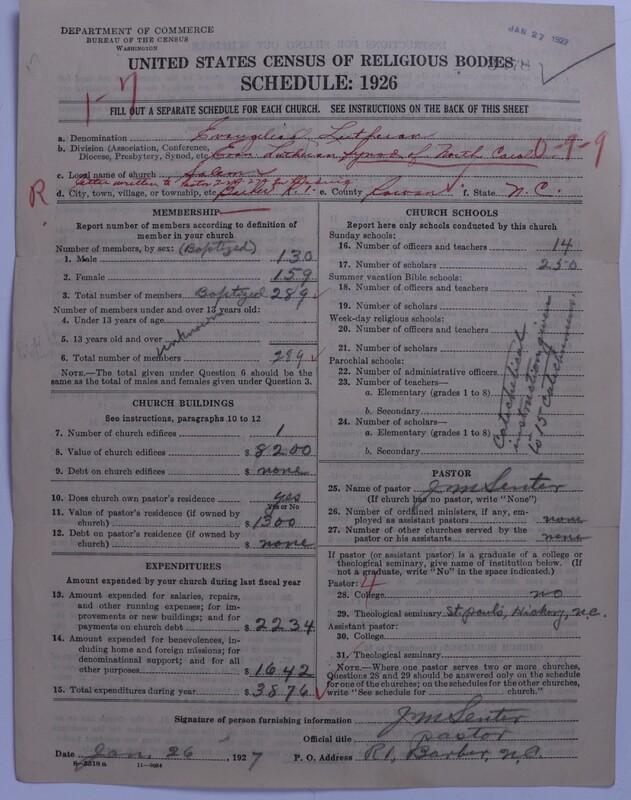 DEPARTMENT OF COMMERCE
BUREAU OF THE CENSUS
WASHINGTON
JAN 27 1927
UNITED STATES CENSUS OF RELIGIOUS BODIES
SCHEDULE: 1926
1-7
FILL OUT A SEPARATE SCHEDULE FOR EACH CHURCH. SEE INSTRUCTIONS ON THE BACK OF THIS SHEET
a. Denomination Evangelical Lutheran
b. Division (Association, Conference,
Diocese, Presbytery, Synod, etc Evan Lutheran Synod of North Caro 0-9-9
c. Local name of church Salem
R letter written to Pastor
d. City, town, village, or township, etc Barber R. 1. e. County Rowan f. State N.C.
MEMBERSHIP
Report number of members according to definition of
member in your church
Number of members, by sex: (Baptized)
1. Male 130
2. Female 159
3. Total number of members Baptized 289
Number of members under and over 13 years old:
4. Under 13 years of age
5. 13 years old and over
unknown
6. Total number of members 289
NOTE.—The total given under Question 6 should be the
same as the total of males and females given under Question 3.
CHURCH BUILDINGS
See instructions, paragraphs 10 to 12
7. Number of church edifices 1
8. Value of church edifices $ 8200
9. Debt on church edifices $ none
10. Does church own pastor's residence yes
Yes or No
11. Value of pastor's residence (if owned by
church) $ 1300
12. Debt on pastor's residence (if owned by
church) $ none
EXPENDITURES
Amount expended by your church during last fiscal year
13. Amount expended for salaries, repairs,
and other running expenses; for im-
provements or new buildings; and for
payments on church debt $ 2234
14. Amount expended for benevolences, in-
cluding home and foreign missions; for
denominational support; and for all
other purposes $ 1642
15. Total expenditures during year $ 3876
CHURCH SCHOOLS
Report here only schools conducted by this church
Sunday schools:
16. Number of officers and teachers 14
17. Number of scholars 250
Summer vacation Bible schools:
18. Number of officers and teachers
19. Number of scholars
Week-day religious schools:
20. Number of officers and teachers
21. Number of scholars
Parochial schools:
22. Number of administrative officers
23. Number of teachers—
a. Elementary (grades 1 to 8)
b. Secondary
24. Number of scholars—
a. Elementary (grades 1 to 8)
b. Secondary
Catechetical
instruction given
to 15 Catechumens
PASTOR
25. Name of pastor J M Senter
(If church has no pastor, write "None")
26. Number of ordained ministers, if any, em-
ployed as assistant pastors none
27. Number of other churches served by the
pastor or his assistants none
If pastor (or assistant pastor) is a graduate of a college or
theological seminary, give name of institution below. (If
not a graduate, write "No" in the space indicated.)
Pastor: 4
28. College no
29. Theological seminary St. Paul's, Hickory, N.C.
Assistant pastor:
30. College
31. Theological seminary
NOTE.—Where one pastor serves two or more churches,
Questions 28 and 29 should be answered only on the schedule
for one of the churches; on the schedules for the other churches,
write "See schedule for church."
Signature of person furnishing information J M Senter
Official title pastor
Date Jan. 26, 1927 P. O. Address R1, Barber, N.C.
8-2318a 11-9084